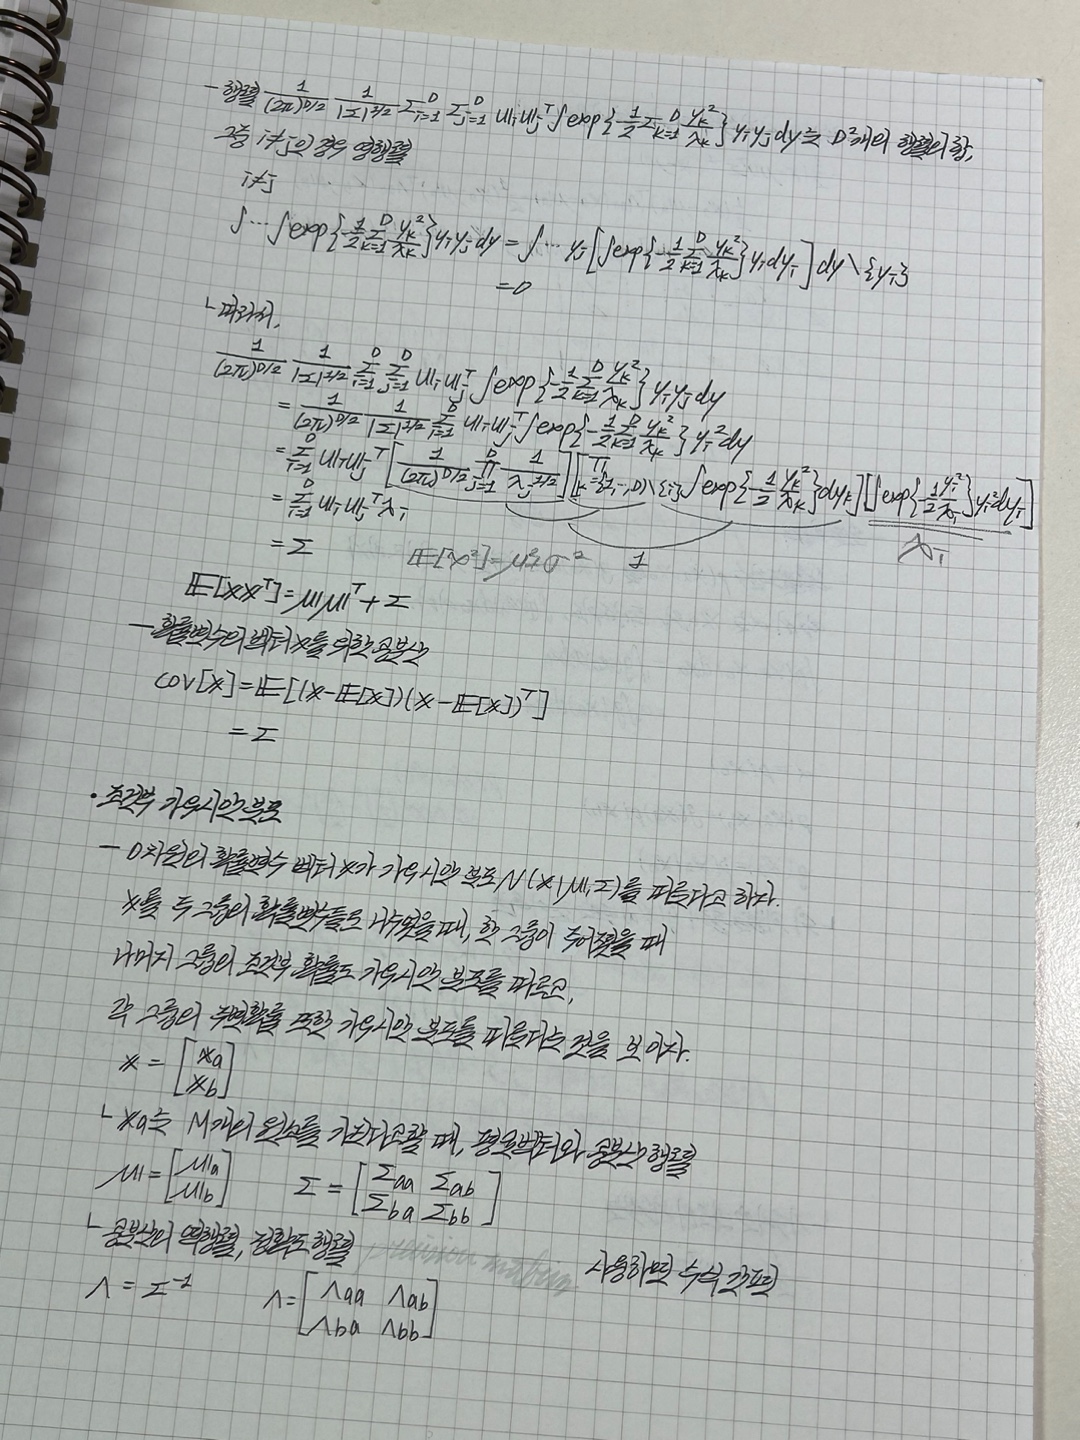 - 행렬 1/(2π)^{D/2} 1/|Σ|^{1/2} Σ_{i=1}^D Σ_{j=1}^D u_i u_j^T ∫exp{-1/2 Σ_{k=1}^D y_k²/λ_k} y_i y_j dy는 D²개의 행렬의 합,
그중 i≠j의 경우 영행렬
i≠j
∫…∫exp{-1/2 Σ_{k=1}^D y_k²/λ_k} y_i y_j dy = ∫… y_j [∫exp{-1/2 Σ_{k=1}^D y_k²/λ_k} y_i dy_i] dy\{y_i}
=0
└ 따라서,
1/(2π)^{D/2} 1/|Σ|^{1/2} Σ_{i=1}^D Σ_{j=1}^D u_i u_j^T ∫exp{-1/2 Σ_{k=1}^D y_k²/λ_k} y_i y_j dy
= 1/(2π)^{D/2} 1/|Σ|^{1/2} Σ_{i=1}^D u_i u_j^T ∫exp{-1/2 Σ_{k=1}^D y_k²/λ_k} y_i² dy
= Σ_{i=1}^D u_i u_j^T [1/(2π)^{D/2} Π_{j=1}^D 1/λ_j^{1/2}] [Π_{k={1,…,D}\{i}} ∫exp{-1/2 y_k²/λ_k} dy_k] [∫exp{-1/2 y_i²/λ_i} y_i² dy_i]
= Σ_{i=1}^D u_i u_j^T λ_i
1 λ_i
= Σ
E[x²]=μ²+σ²
E[xx^T]=μμ^T+Σ
- 확률변수의 벡터 x를 위한 공분산
cov[x]=E[(x-E[x])(x-E[x])^T]
= Σ
• 조건부 가우시안 분포
- D차원의 확률변수 벡터 x가 가우시안 분포 N(x|μ,Σ)를 따른다고 하자.
x를 두 그룹의 확률변수들로 나누었을 때, 한 그룹이 주어졌을 때
나머지 그룹의 조건부 확률도 가우시안 분포를 따르고,
각 그룹의 주변확률 또한 가우시안 분포를 따른다는 것을 보이자.
x = [x_a; x_b]
└ x_a는 M개의 원소를 가진다고 할 때, 평균벡터와 공분산 행렬
μ = [μ_a; μ_b] Σ = [Σ_aa Σ_ab; Σ_ba Σ_bb]
└ 공분산의 역행렬, 정확도 행렬 precision matrix 사용하면 수식 간편
Λ = Σ^{-1} Λ = [Λ_aa Λ_ab; Λ_ba Λ_bb]